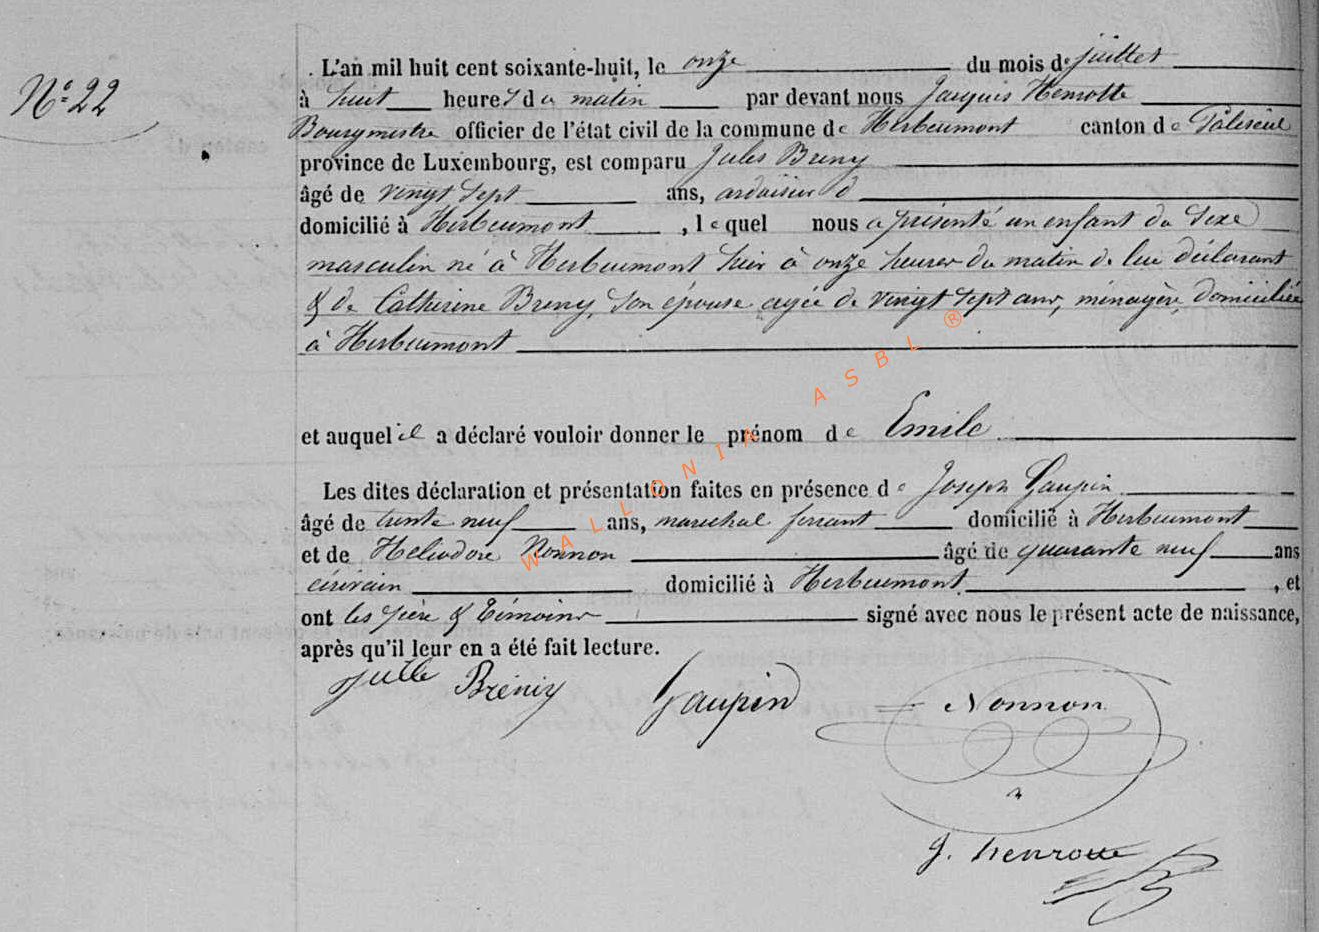 Nº 22
L'an mil huit cent soixante-huit, le onze du mois de juillet
à huit heures du matin par devant nous Jacques Henrotte
Bourgmestre officier de l'état civil de la commune de Herbeumont canton de Paliseul
province de Luxembourg, est comparu Jules Breny
âgé de vingt sept ans, ardoisier
domicilié à Herbeumont, lequel nous a présenté un enfant du sexe
masculin né à Herbeumont hier à onze heures du matin de lui déclarant
& de Catherine Breny, son épouse agée de vingt sept ans, ménagère, domiciliée
à Herbeumont
et auquel il a déclaré vouloir donner le prénom de Emile
Les dites déclaration et présentation faites en présence de Joseph Gaupin
âgé de trente neuf ans, marechal ferrant domicilié à Herbeumont
et de Heliodore Nonnon âgé de quarante neuf ans
écrivain domicilié à Herbeumont, et
ont les père & témoins signé avec nous le présent acte de naissance,
après qu'il leur en a été fait lecture.
Julle Bréniy Gaupin Nonnon
J. henrotte
WALLONIA ASBL ®